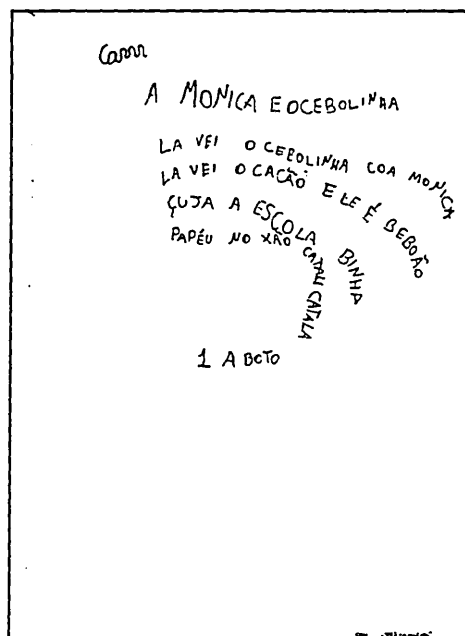 Camr
A MONICA E OCEBOLINHA
LA VEI O CEBOLINHA COA MONICA
LA VEI O CACÃO E LE É BEBOÃO
ÇUJA A ESCOLA BINHA
PAPÉU NO XÃO CATALI CATALA
1 A BCTO